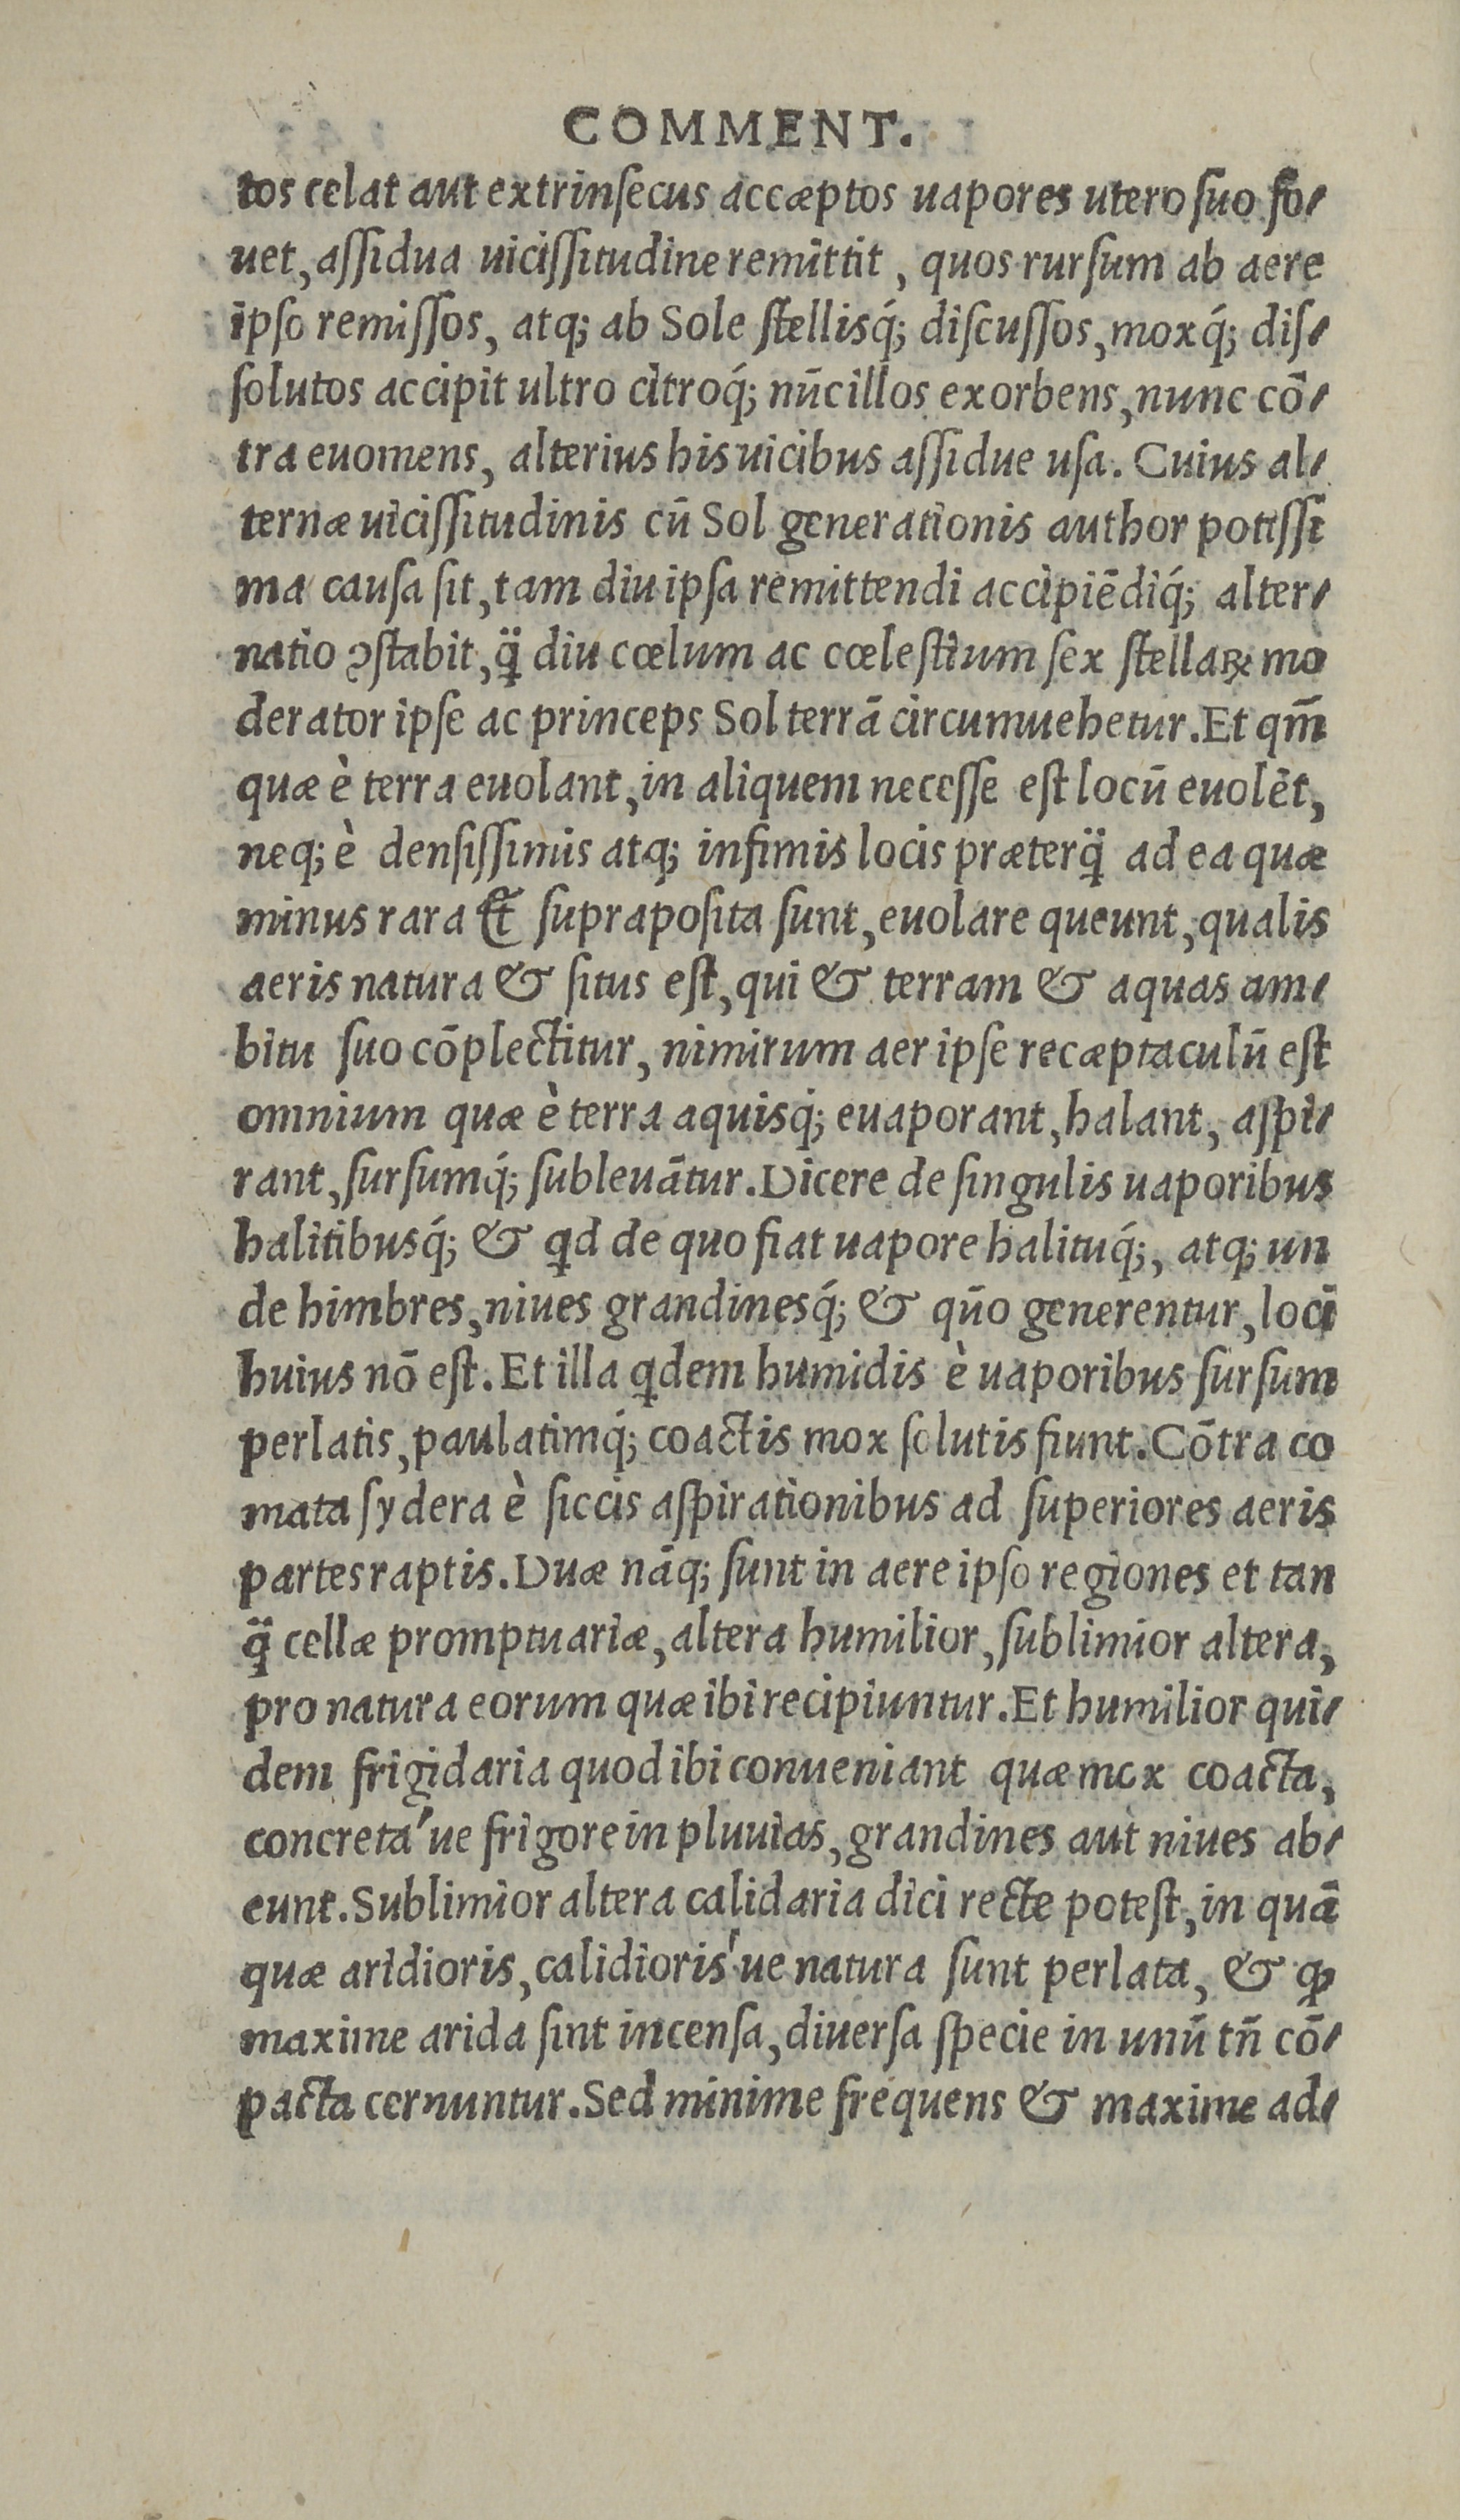 COMMENT.
tos celat aut extrinſecus accæptos uapores utero ſuo fo⸗
uet, aſſidua uiciſſitudine remittit, quos rurſum ab aere
ipſo remiſſos, atq; ab Sole ſtellisq́; diſcuſſos, moxq́; diſ⸗
ſolutos accipit ultro citroq́; nūc illos exorbens, nunc cō⸗
tra euomens, alterius his uicibus aſſidue uſa. Cuius al⸗
ternæ uiciſſitudinis cū Sol generationis author potiſſi
ma cauſa ſit, tam diu ipſa remittendi accipiēdiq́; alter⸗
natio ꝯſtabit, q̈̃ diu cœlum ac cœleſtium ſex ſtellaꝝ mo
derator ipſe ac princeps Sol terrā circumuehetur. Et qm̄
quæ è terra euolant, in aliquem neceſſe eſt locū euolēt,
neq; è denſiſſimis atq; infimis locis præterq̈̃ ad ea quæ
minus rara & ſupraposita ſunt, euolare queunt, qualis
aeris natura & ſitus eſt, qui & terram & aquas am⸗
bitu ſuo cōplectitur, nimirum aer ipſe recæptaculū eſt
omnium quæ è terra aquisq́; euaporant, halant, aſpi⸗
rant, ſurſumq́; ſubleuātur. Dicere de ſingulis uaporibus
halitibusq́; & qd de quo fiat uapore halituq́;, atq; un
de himbres, niues grandinesq́; & qūo generentur, loci
huius nō eſt. Et illa qdem humidis è uaporibus ſurſum
perlatis, paulatimq́; coactis mox ſolutis fiunt. Cōtra co
mata ſydera è ſiccis aſpirationibus ad ſuperiores aeris
partes raptis. Duæ nāq; ſunt in aere ipſo regiones et tan
q̈̃ cellæ promptuariæ, altera humilior, ſublimior altera,
pro natura eorum quæ ibi recipiuntur. Et humilior qui⸗
dem frigidaria quod ibi conueniant quæ mox coacta,
concreta'ue frigore in pluuias, grandines aut niues ab⸗
eunt. Sublimior altera calidaria dici recte poteſt, in quā
quæ aridioris, calidioris'ue natura ſunt perlata, & ꝙ
maxime arida ſint incenſa, diuerſa ſpecie in unū tn̄ cō⸗
pacta cernuntur. Sed minime frequens & maxime ad⸗